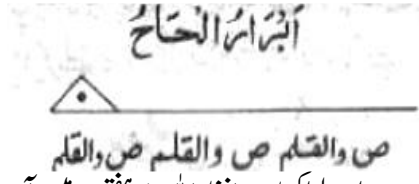 اَبْرَارُ الْحَاحُ
ص والقلم ص والقلم ص والقلم